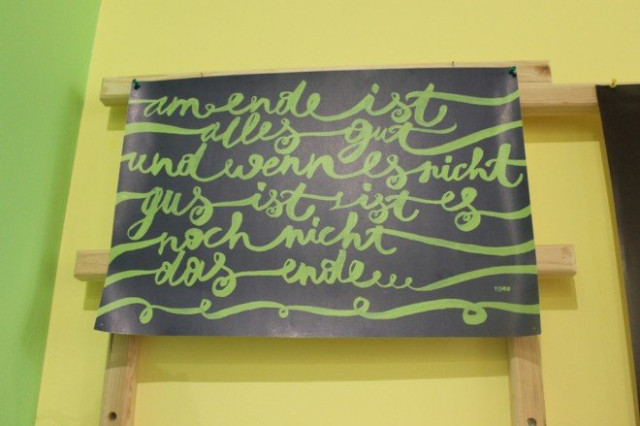 am ende ist
alles gut
und wenn es nicht
gus ist, ist es
noch nicht
das ende...